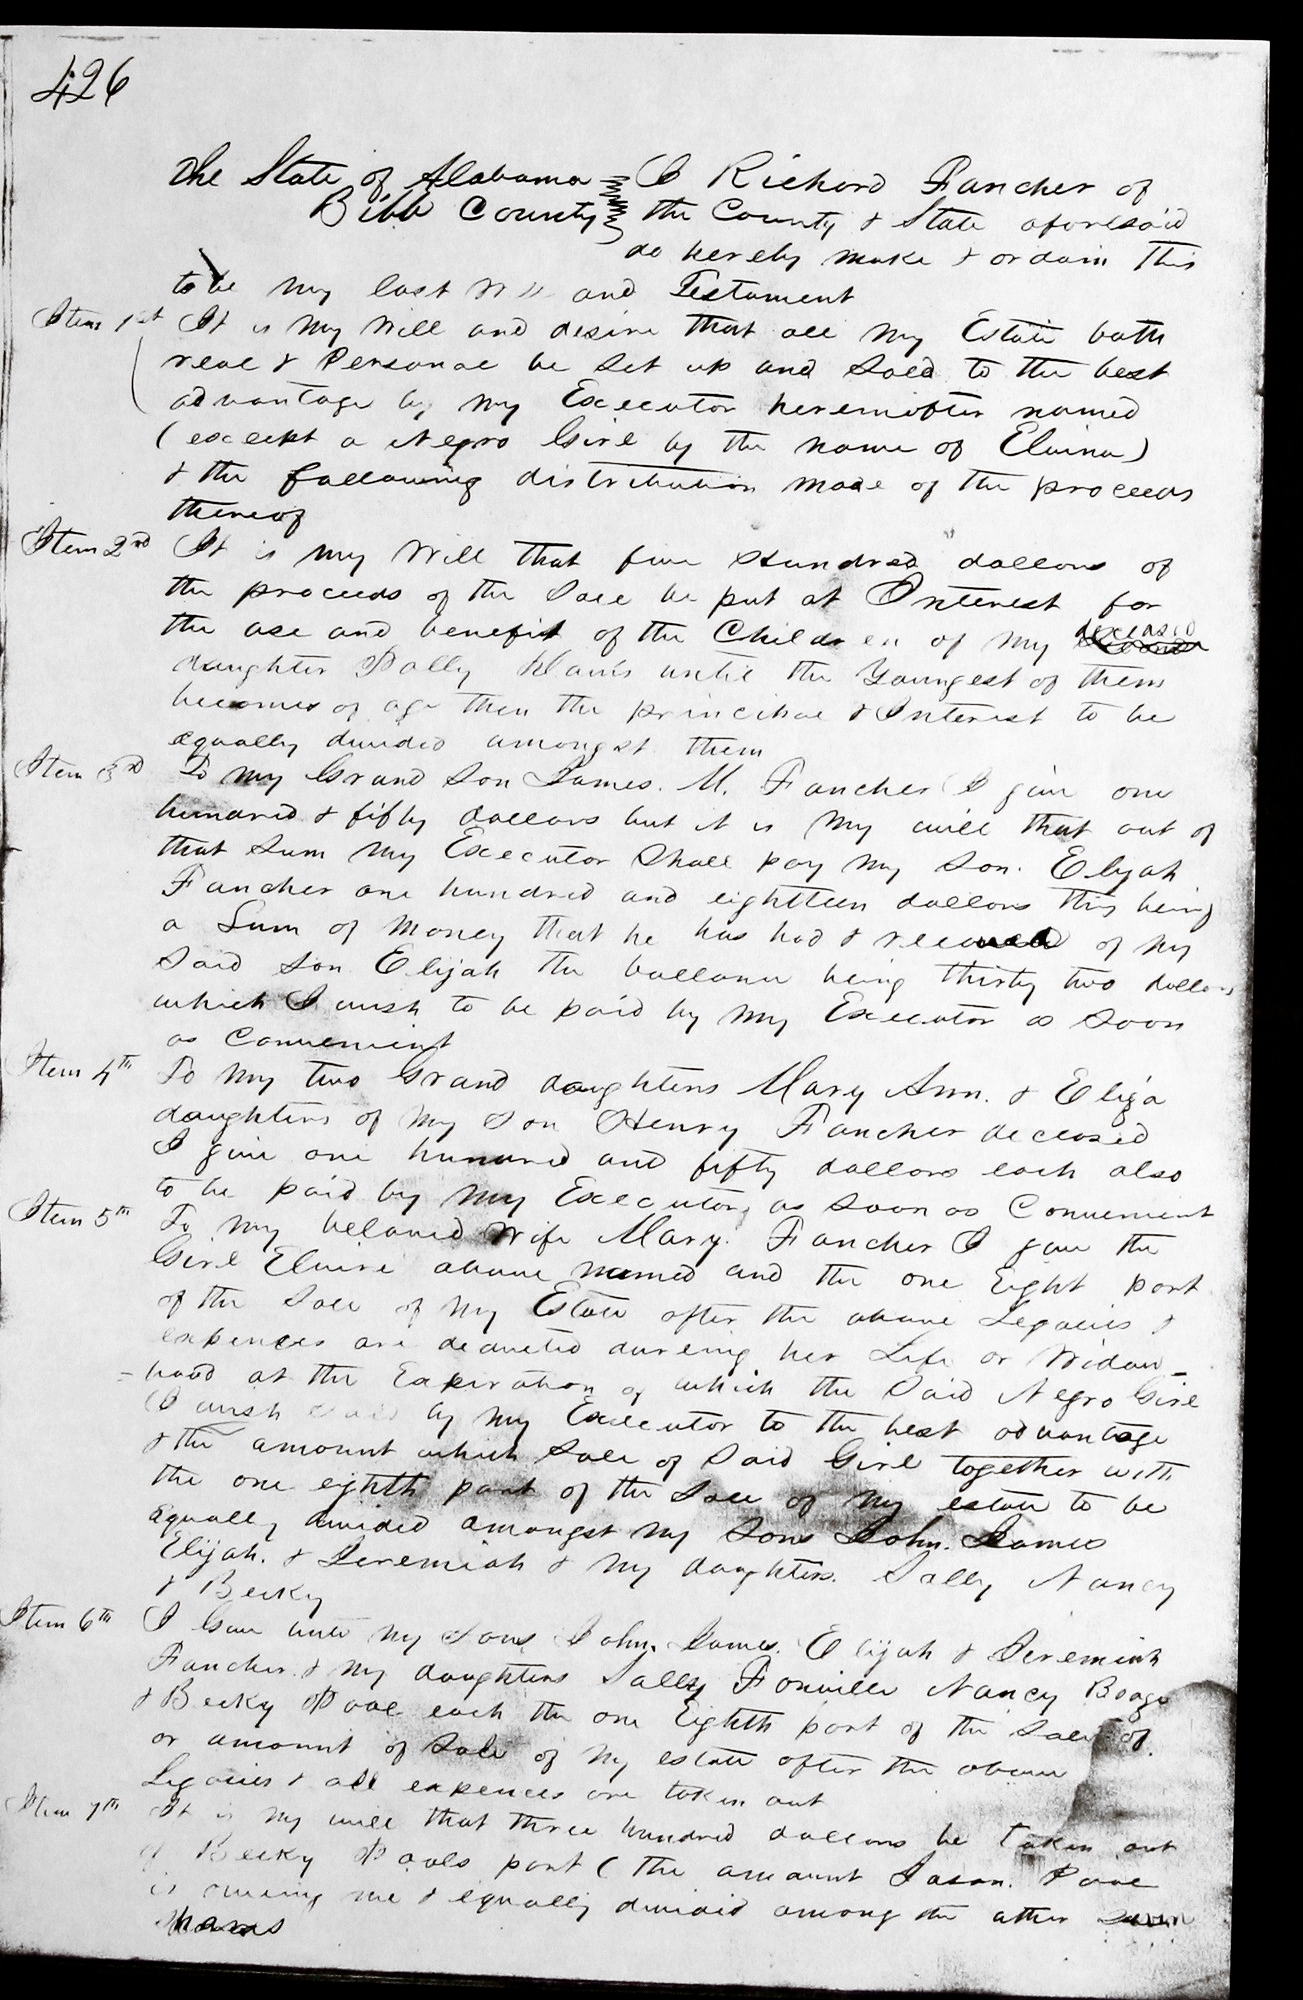 426
The State of Alabama I Richard Fancher of
Bibb County the County & State aforesaid
do hereby make & ordain This
to be my last Will and Testament
Item 1st It is my Will and desire that all my Estate both
real & Personal be Set up and Sold to the best
advantage by my Executor hereinafter named
(except a Negro Girl by the name of Elvina)
& the following distribution made of the proceeds
thereof
Item 2nd It is my Will that five Hundred dollars of
the proceeds of the Sale be put at Interest for
the use and benefit of the Children of my deceased
daughter Polly until the Youngest of them
becomes of age then the principal & Interest to be
equally divided amongst them
Item 3rd To my Grand Son James. M. Fancher I give one
hundred & fifty dollars but it is my will that out of
that Sum my Executor Shall pay my Son. Elijah
Fancher one hundred and eighteen dollars this being
a Sum of Money that he has had & received of my
Said Son Elijah the ballance being thirty two dollars
which I wish to be paid by my Executor as Soon
as Convenient
Item 4th To my two Grand daughters Mary Ann. & Eliza
daughters of my Son Henry Fancher deceased
I give one hundred and fifty dollars each also
to be paid by my Executor as Soon as Convenient
Item 5th To my beloved Wife Mary Fancher I give the
Girl Elvira above named and the one Eight part
of the Sale of my Estate after the above Legacies &
expences are deducted dureing her Life or Widow
= hood at the Expiration of which the Said Negro Girl
I wish Sold by my Executor to the best advantage
& the amount which Sale of Said Girl together with
the one eighth part of the Sale of my estate to be
equally divided amongst my Sons John. James
Elijah. & Jeremiah & my daughters. Sally Nancy
& Becky
Item 6th I Give unto my Sons John. James. Elijah & Jeremiah
Fancher. & my daughters Sally Fonville Nancy
& Becky Pool each the one Eighth part of the Sale of
or amount of Sale of my estate after the above
Legacies & all expences are taken out
Item 7th It is my will that three hundred dollars be taken out
of Becky Pools part (the amount Jason. Pool
is owing me & equally divided among the other